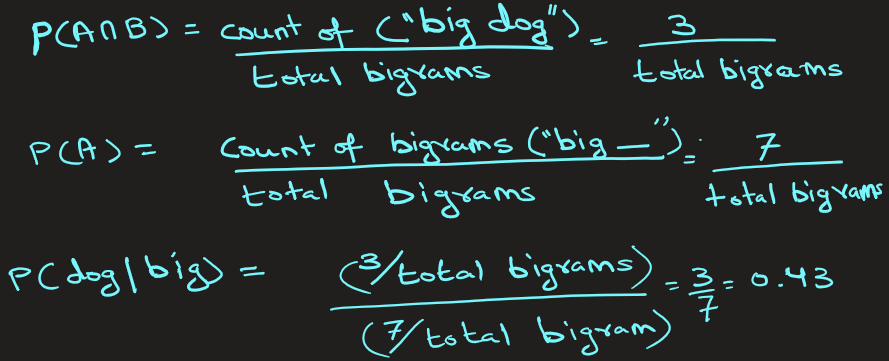 P(A∩B) = count of ("big dog") / total bigrams = 3 / total bigrams
P(A) = count of bigrams ("big —") / total bigrams = 7 / total bigrams
P(dog|big) = (3/total bigrams) / (7/total bigram) = 3/7 = 0.43